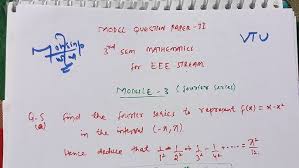 MODEL QUESTION PAPER - II
3rd SEM MATHEMATICS
VTU
for EEE STREAM
MODULE - 3 (fourier series)
Q.5 find the fourier series to represent f(x) = x - x²
(a) in the interval (-π, π)
Hence deduce that 1/1² - 1/2² + 1/3² - 1/4² ...... = π²/12